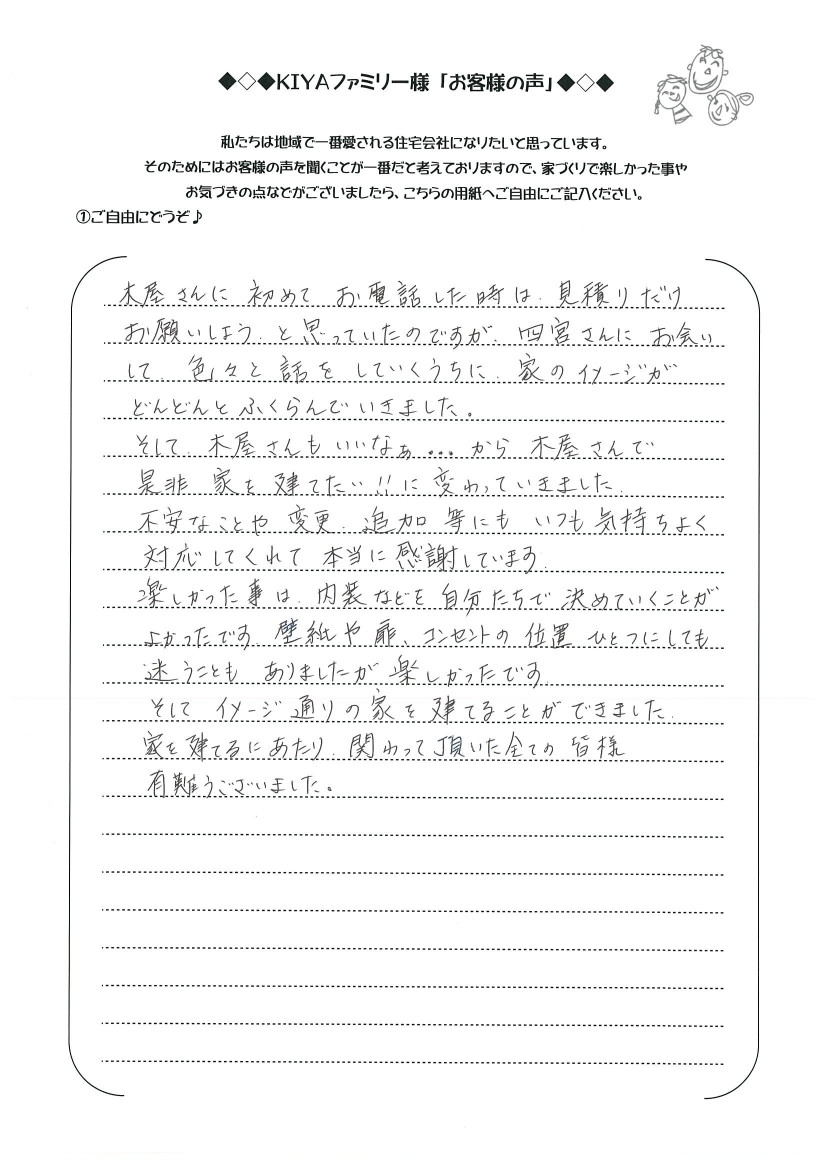 ◆◇◆KIYAファミリー様「お客様の声」◆◇◆
私たちは地域で一番愛される住宅会社になりたいと思っています。
そのためにはお客様の声を聞くことが一番だと考えておりますので、家づくりで楽しかった事や
お気づきの点などがございましたら、こちらの用紙へご自由にご記入ください。
①ご自由にどうぞ♪
木屋さんに 初めて お電話した時は、見積りだけ
お願いしよう、と思っていたのですが、四宮さんに お会い
して、色々と 話を していくうちに、家のイメージが
どんどんと ふくらんでいきました。
そして、木屋さんもいいなぁ...から 木屋さんで
是非 家を 建てたい!!に 変わっていきました。
不安なことや 変更、追加 等にも いつも気持ちよく
対応してくれて 本当に感謝しています。
楽しかった事は、内装などを 自分たちで 決めていくことが
よかったです。壁紙や 扉、コンセントの 位置 ひとつにしても
迷うことも ありましたが 楽しかったです。
そして イメージ通りの 家を 建てることができました。
家を建てるにあたり、関わって頂いた全ての 皆様
有難うございました。